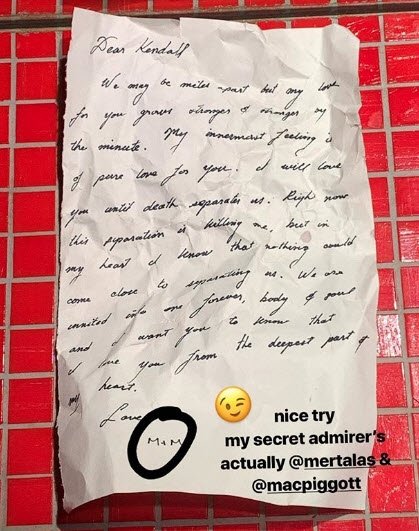 Dear Kendall
We may be miles apart but my love
for you grows stronger & stronger by
the minute. My innermost feeling is
of pure love for you. I will love
you until death separates us. Righ now
this separation is killing me, but in
my heart I know that nothing could
come close to separating us. We are
united into one forever, body & soul
and I want you to know that
I love you from the deepest part of
my heart.
Love
M+M
nice try
my secret admirer's
actually @mertalas &
@macpiggott